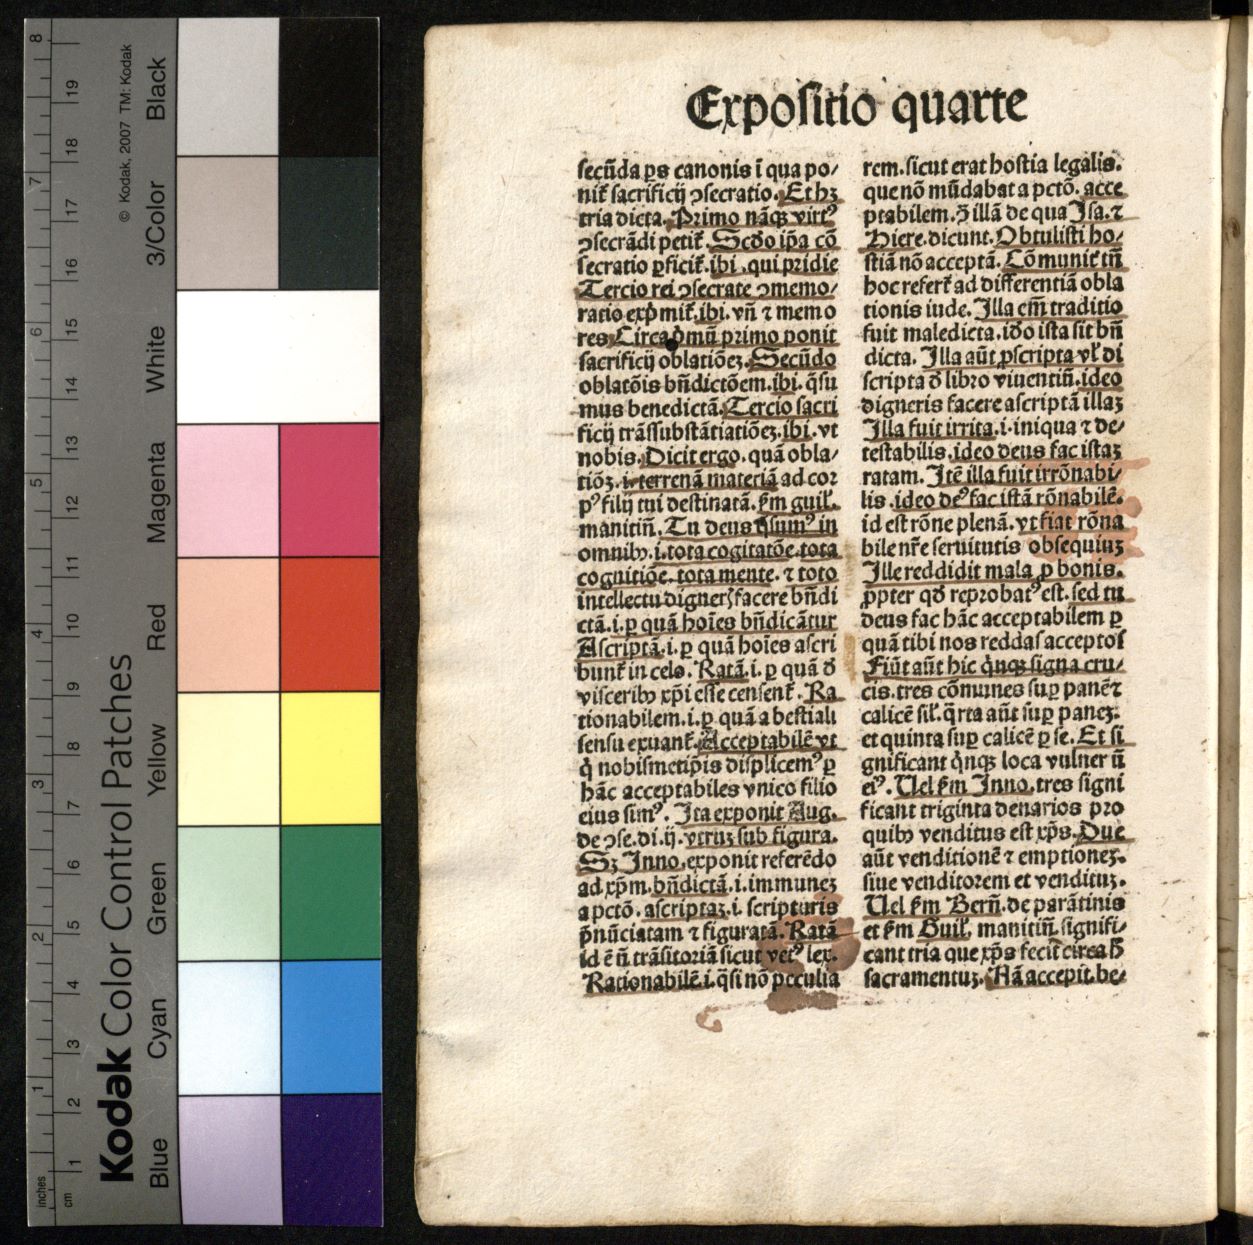 Kodak Color Control Patches
© Kodak, 2007 TM: Kodak
Blue Cyan Green Yellow Red Magenta White 3/Color Black
inches 1 2 3 4 5 6 7 8
cm 1 2 3 4 5 6 7 8 9 10 11 12 13 14 15 16 17 18 19
Expositio quarte
secūda ꝑs canonis ī qua po/
nit᷑ sacrificij ꝯsecratio. Et hꝫ
tria dicta. Primo nāqꝫ virtꝰ
ꝯsecrādi petit᷑. Scḋo ip̄a cō
secratio ꝑficit᷑. ibi. qui pridie
Tercio rei ꝯsecrate ꝯmemo/
ratio exp̄mit᷑. ibi. vn̄ ⁊ memo
res. Circa p̄mū primo ponit
sacrificij oblatiōeꝫ. Secūdo
oblatōis bn̄dictōem. ibi. q̄su
mus benedictā. Tercio sacri
ficij trāſſubstātiatiōeꝫ. ibi. vt
nobis. Dicit ergo. quā obla/
tiōꝫ. i. terrenā materiā ad cor
pꝰ filij tui destinatā. ẜm guil̄.
manitiū. Tu deus q̄sumꝰ in
omnibꝫ. i. tota cogitatōe. tota
cognitiōe. tota mente. ⁊ toto
intellectu digneris facere bn̄di
ctā. i. ꝑ quā hoīes bn̄dicātur
Ascriptā. i. ꝑ quā hoīes ascri
bunt᷑ in celo. Ratā. i. ꝑ quā ḋ
visceribꝫ xp̄i esse censent᷑. Ra
tionabilem. i. ꝑ quā a bestiali
sensu exuant᷑. Acceptabilē vt
q̇ nobismetip̄is displicemꝰ ꝑ
hāc acceptabiles vnico filio
eius simꝰ. Ita exponit Aug.
de ꝯse. di. ij. vtruꝫ sub figura.
Sꝫ Inno. exponit referēdo
ad xp̄m. bn̄dictā. i. immuneꝫ
a pctō. ascriptaꝫ. i. scripturis
p̄nūciatam ⁊ figuratā. Ratā
id ē n̄ trāsitoriā sicut vetꝰ lex.
Rationabilē. i. q̄si nō peculia
rem. sicut erat hostia legalis.
que nō mūdabat a pctō. acce
ptabilem. h̄ illā de qua Isa. ⁊
Hiere. dicunt. Obtulisti ho/
stiā nō acceptā. Cōmunit᷑ tn̄
hoc refert᷑ ad differentiā obla
tionis iude. Illa em̄ traditio
fuit maledicta. iḋo ista sit bn̄
dicta. Illa aūt ꝓscripta vl̄ di
scripta ḋ libro viuentiū. ideo
digneris facere ascriptā illaꝫ
Illa fuit irrita. i. iniqua ⁊ de/
testabilis. ideo deus fac istaꝫ
ratam. Itē illa fuit irrōnabi/
lis. ideo deꝰ fac istā rōnabilē.
id est rōne plenā. vt fiat rōna
bile nr̄e seruitutis obsequiuꝫ
Ille reddidit mala ꝓ bonis.
ꝓpter qḋ reprobatꝰ est. sed tu
deus fac hāc acceptabilem ꝑ
quā tibi nos reddas acceptos
Fiūt aūt hic q̇nqꝫ signa cru/
cis. tres cōmunes suꝑ panē ⁊
calicē sil̄. q̄rta aūt suꝑ paneꝫ.
et quinta suꝑ calicē ꝑ se. Et si
gnificant q̇nqꝫ loca vulnerū
eiꝰ. Uel ẜm Inno. tres signi
ficant triginta denarios pro
quibꝫ venditus est xp̄s. Due
aūt venditionē ⁊ emptioneꝫ.
siue venditorem et vendituꝫ.
Uel ẜm Bern̄. de parātinis
et ẜm Guil̄. manitiū. signifi/
cant tria que xp̄s fecit circa h̄
sacramentuꝫ. Nā accepit. be/